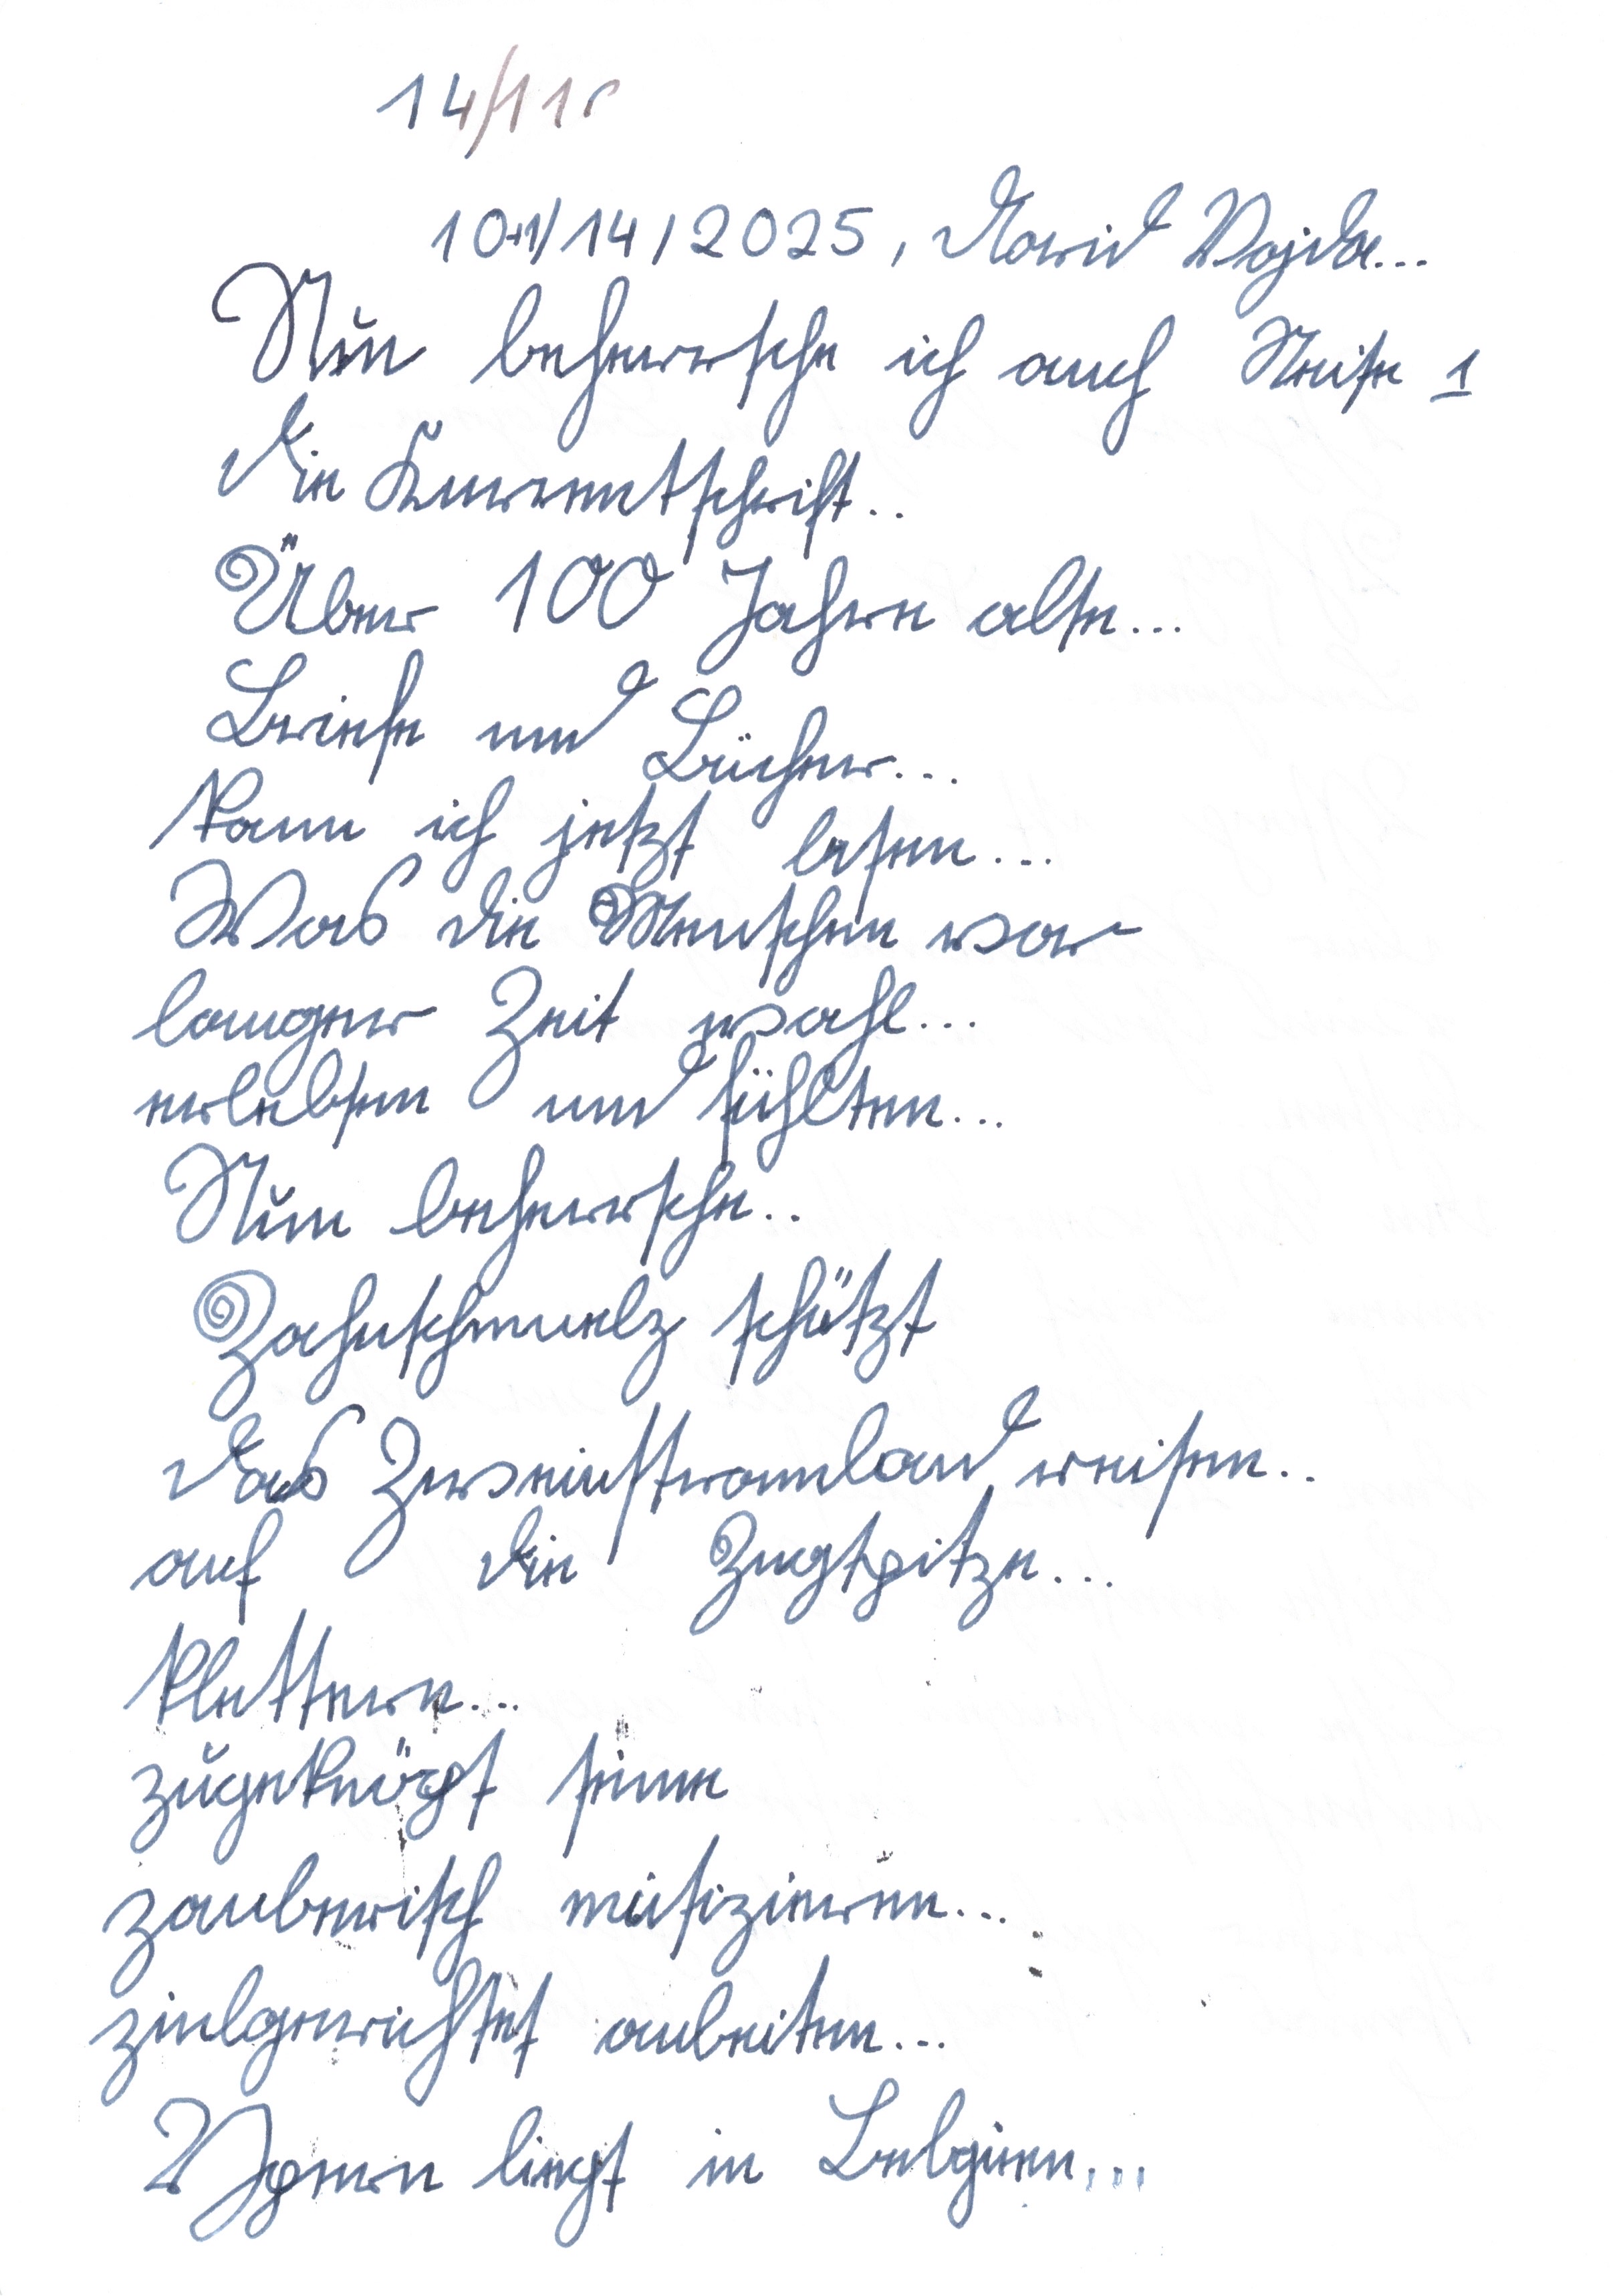 14/11
10+1/14/2025, David Vajda...
Nun beherrsche ich auch Seite 1
die Kurrentschrift..
Über 100 Jahre alte...
Briefe und Bücher...
kann ich jetzt lesen...
Was die Menschen vor
langer Zeit wohl...
erlebten und fühlten...
Nun beherrsche..
Zahnschmelz schützt
das Zweistromland reisen..
auf die Zugspitze...
klettern...
zugeknöpft seine
zauberisch musizieren...
zielgerichtet arbeiten...
Ypern liegt in Belgien...